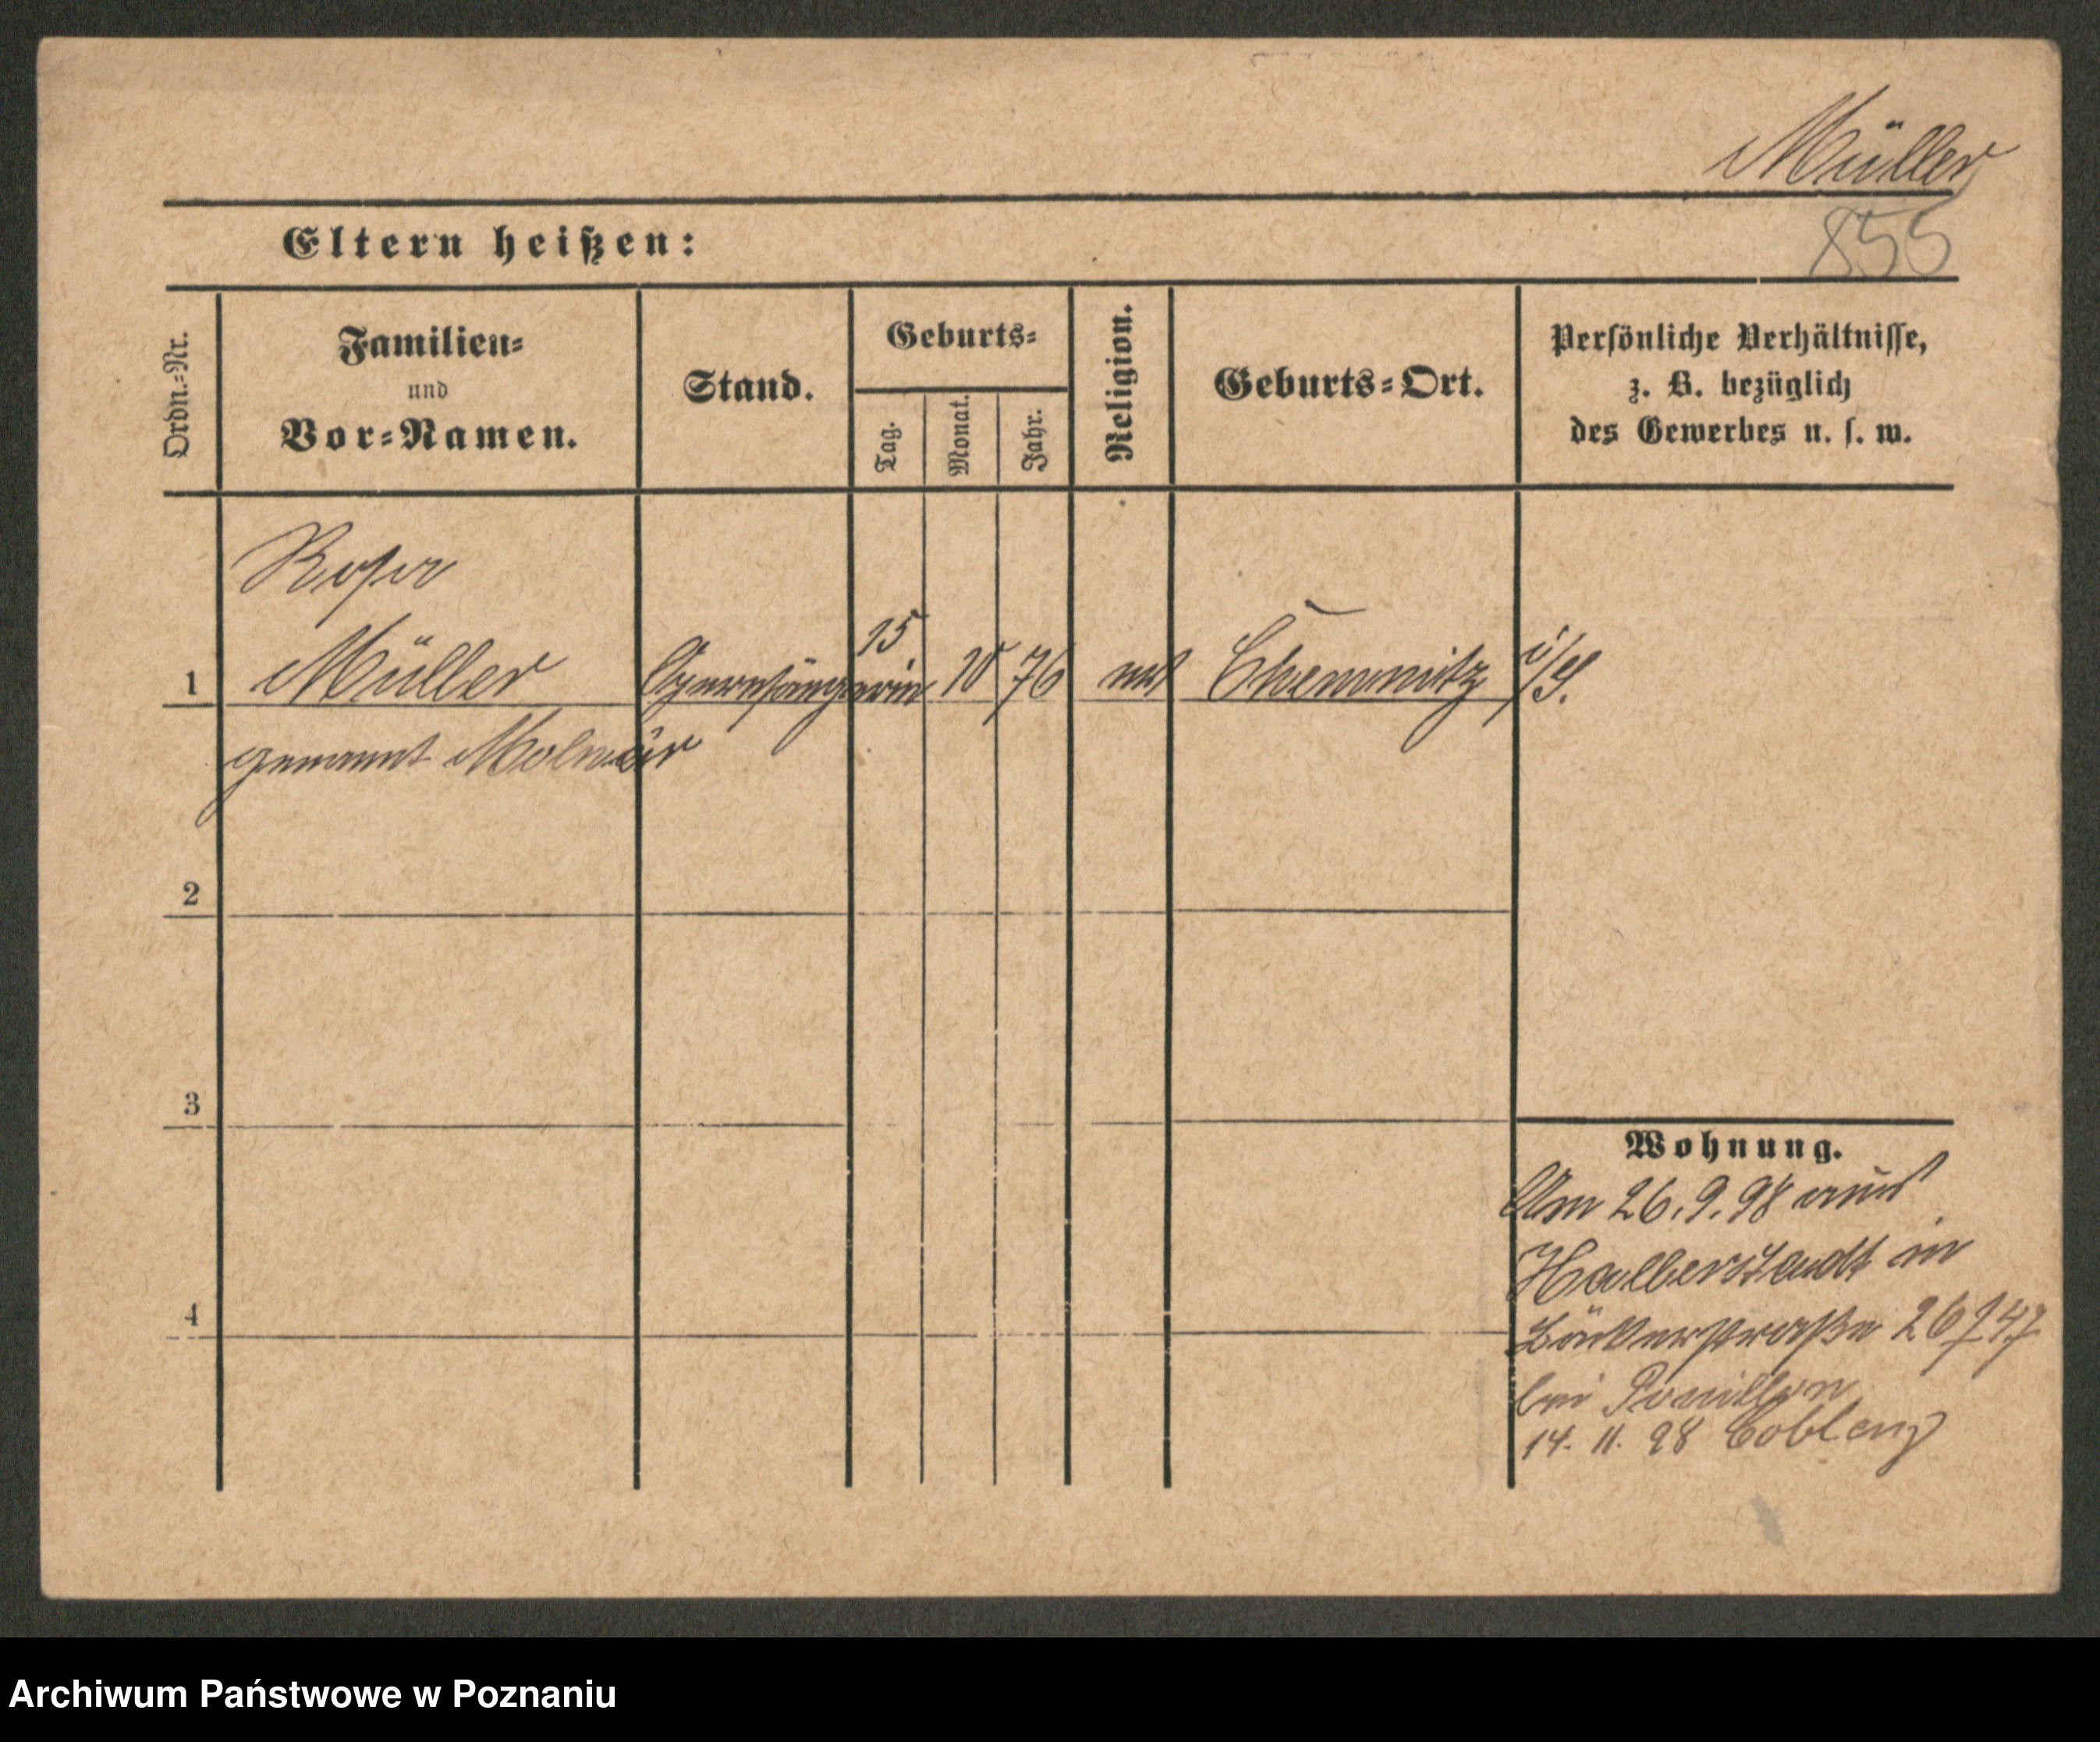 Müller
855
Eltern heißen:
Ordn.-Nr.
Familien-
und
Vor-Namen.
Stand.
Geburts-
Tag.
Monat.
Jahr.
Religion.
Geburts-Ort.
Persönliche Verhältnisse,
z. B. bezüglich
des Gewerbes u. s. w.
Rosa
1 Müller Opernsängerin 15 10 76 Chemnitz i/S.
genannt Molnár
2
3
4
Wohnung.
Am 26.9.98 aus
Halberstadt in
Bäckerstraße 26
bei
14. 11. 98 Coblenz
Archiwum Państwowe w Poznaniu